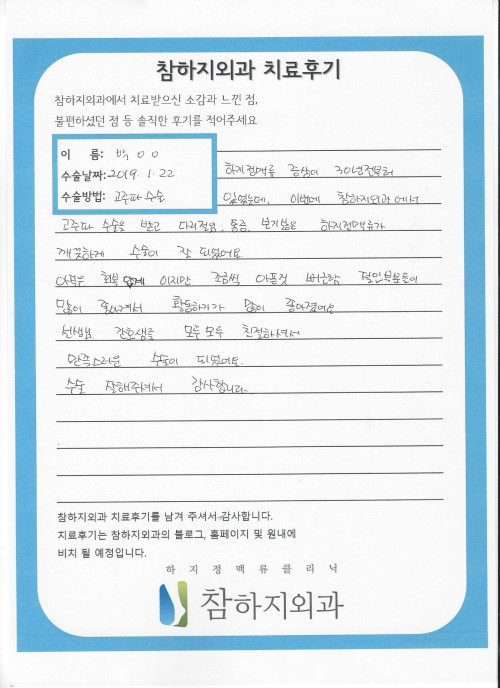 참하지외과 치료후기
참하지외과에서 치료받으신 소감과 느낀 점,
불편하셨던 점 등 솔직한 후기를 적어주세요
이 름: 박 0 0
수술날짜: 2019. 1. 22
수술방법: 고주파 수술
하지정맥류 증상이 30년전부터
있었는데, 이번에 참하지외과에서
고주파 수술을 받고 다리저림, 통증, 보기싫은 하지정맥류가
깨끗하게 수술이 잘 되었어요.
아직은 회복 단계 이지만 조금씩 아픈것 버근함
많이 좋아져서 활동하기가 많이 좋아졌어요
선생님, 간호생들 모두모두 친절하셔서
만족스러운 수술이 되었어요.
수술 잘해주셔서 감사합니다.
참하지외과 치료후기를 남겨 주셔서 감사합니다.
치료후기는 참하지외과의 블로그, 홈페이지 및 원내에
비치 될 예정입니다.
하지정맥류클리닉
참하지외과